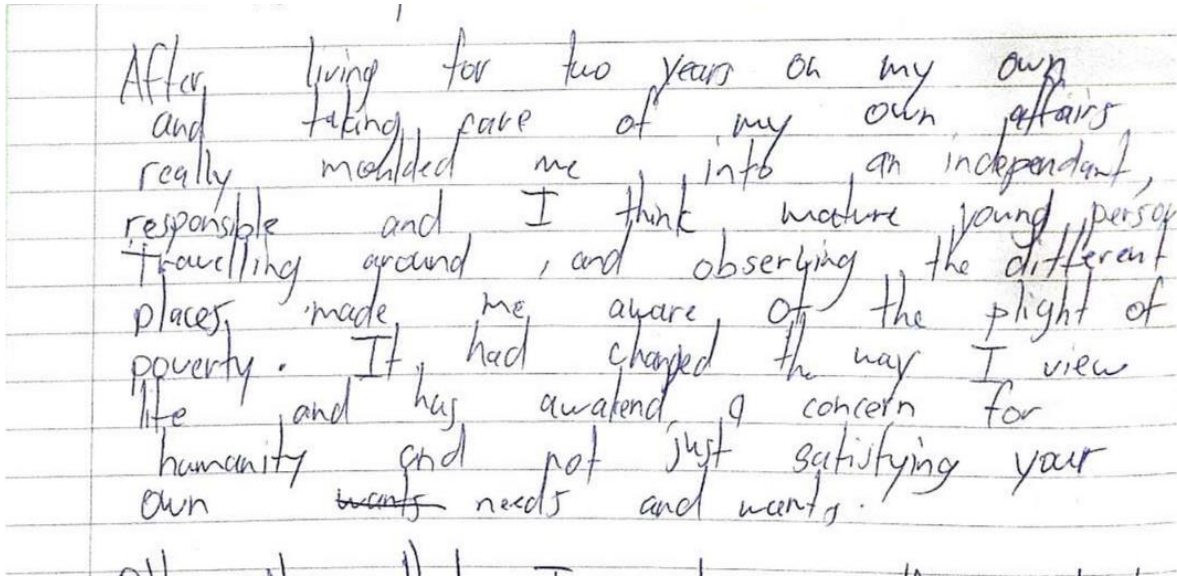 After living for two years on my own
and taking care of my own affairs
really moulded me into an independant,
responsible and I think mature young person
Travelling around , and observing the different
places made me aware of the plight of
poverty. It had changed the way I view
life and has awakend a concern for
humanity and not just satisfying your
own wants needs and wants.